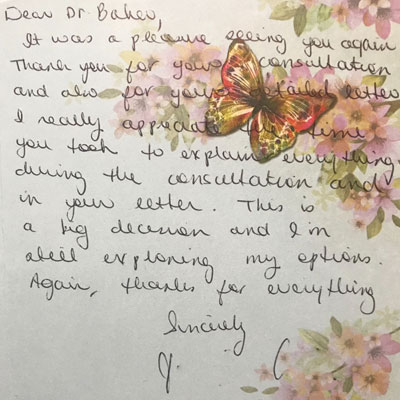 Dear Dr. Baker,
It was a pleasure seeing you again
Thank you for your consultation
and also for your detailed letter
I really appreciate the time
you took to explain everything
during the consultation and
in your letter. This is
a big decision and I'm
still exploring my options.
Again, thanks for everything
Sincerely
Y. C